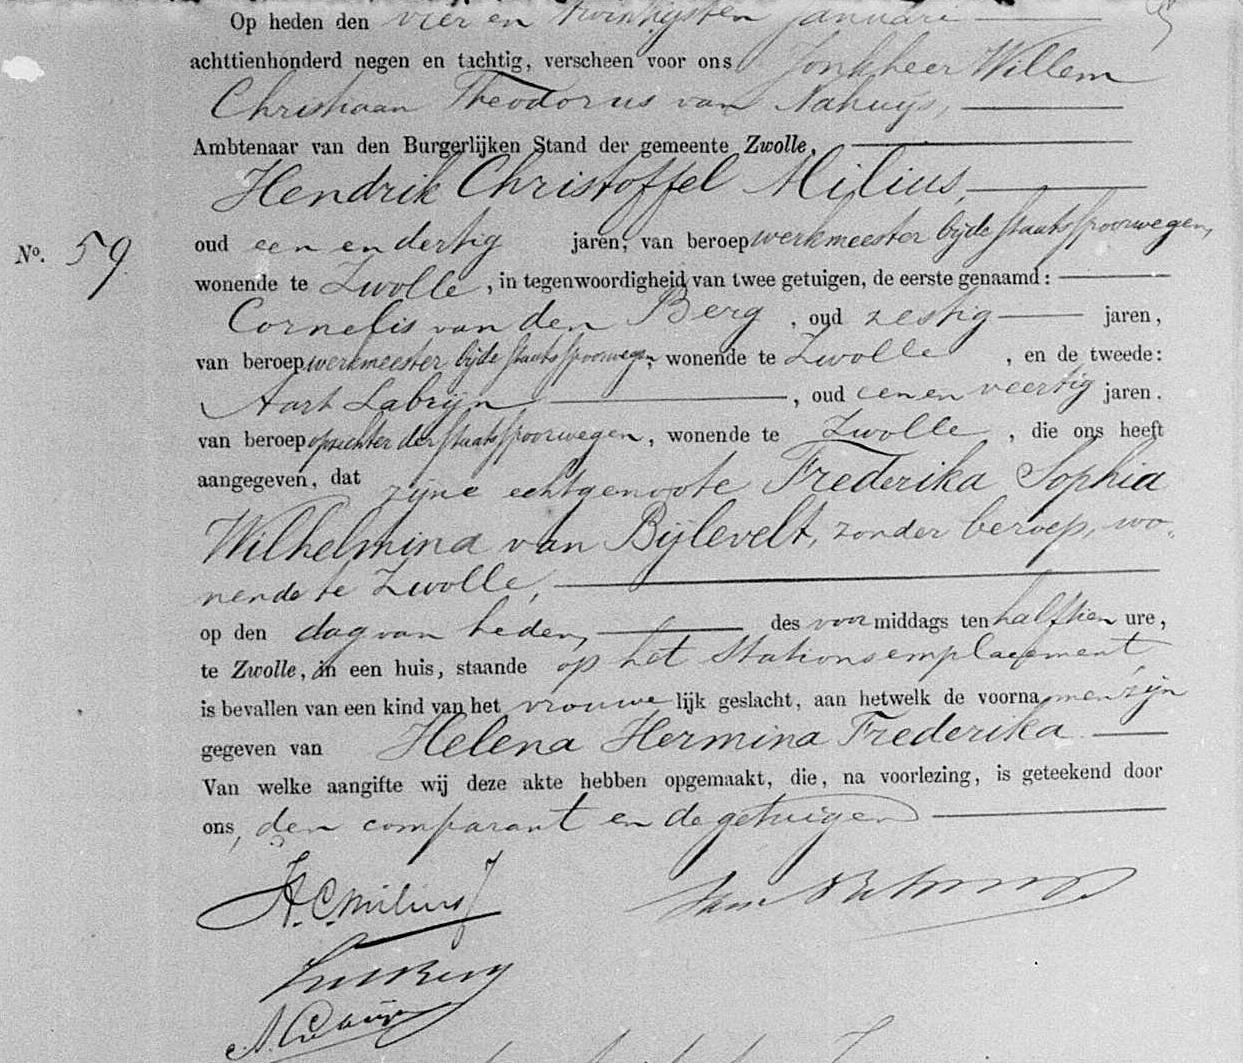 Op heden den vier en twintigsten Januari
achttienhonderd negen en tachtig, verscheen voor ons Jonkheer Willem
Christiaan Theodorus van Nahuijs,
Ambtenaar van den Burgerlijken Stand der gemeente Zwolle,
Hendrik Christoffel Milius,
No. 59
oud een en dertig jaren, van beroep werkmeester bij de Staatsspoorwegen,
wonende te Zwolle, in tegenwoordigheid van twee getuigen, de eerste genaamd:
Cornelis van den Berg, oud zestig jaren,
van beroep werkmeester bij de Staatsspoorwegen, wonende te Zwolle, en de tweede:
Aart Labrijn, oud een en veertig jaren.
van beroep opzichter der Staatsspoorwegen, wonende te Zwolle, die ons heeft
aangegeven, dat zijne echtgenoote Frederika Sophia
Wilhelmina van Bijlevelt, zonder beroep, wo-
nende te Zwolle,
op den dag van heden, des voormiddags ten half tien ure,
te Zwolle, in een huis, staande op het Stationsemplacement,
is bevallen van een kind van het vrouwelijk geslacht, aan hetwelk de voornamen zijn
gegeven van Helena Hermina Frederika
Van welke aangifte wij deze akte hebben opgemaakt, die, na voorlezing, is geteekend door
ons, den comparant en de getuigen
H.C. Milius